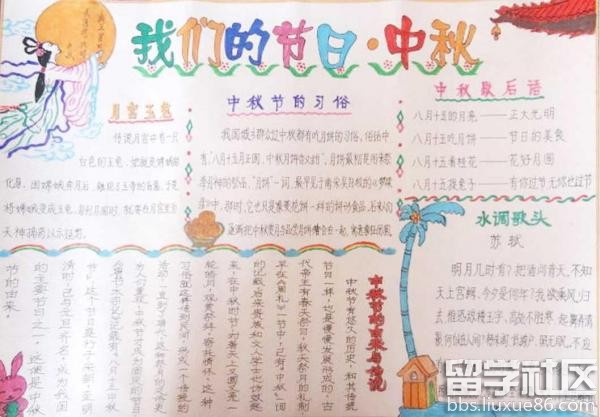 我们的节日·中秋
月宫玉兔
传说月宫中有一只
白色的玉兔，她就是嫦娥的
化身。因嫦娥奔月后，触犯玉帝的旨意，于是
将嫦娥变成玉兔，每到月圆时，就要在月宫里为
天神捣药以示惩罚。
中秋节的习俗
我国城乡群众过中秋都有吃月饼的习俗，俗话中
有："八月十五月正圆，中秋月饼香又甜"。月饼最初是用来祭
奉月神的祭品，"月饼"一词，最早见于南宋吴自牧的《梦粱
录》中，那时，它也只是像菱花饼一样的饼形食品。后来人们
逐渐把中秋赏月与品尝月饼结合在一起，寓意家人团圆
中秋歇后语
八月十五的月亮——正大光明
八月十五吃月饼——节日的美食
八月十五来桂花——花好月圆
八月十五捉兔子——有你过节无你也过节
水调歌头
苏轼
明月几时有？把酒问青天。不知
天上宫阙，今夕是何年？我欲乘风归
去，惟恐琼楼玉宇，高处不胜寒。起舞弄清
影，何似在人间？
中秋节的来历与传说
中秋节有悠久的历史，和其传统
节日一样，也是慢慢发展形成的，古
代帝王有春天祭日，秋天祭月的礼制，
早在《周礼》一书中，已有"中秋"一词
的记载。后来贵族和文人学士也仿效起
来，在中秋时节，对着天上又圆又亮一
轮皓月，观赏祭拜，寄托情怀，这种
习俗就这样传到民间，形成一个传统的
活动，一直到了唐代，这种祭月的风俗更
为人们重视，中秋节才成为固定的节日，
《唐书·太宗记》记载有"八月十五中秋
节"，这个节日盛行于宋朝，至明
清时，已与元旦齐名，成为我国
的主要节日之一，这便是中秋
节的由来。
留学社区
bbs.liuxue86.com